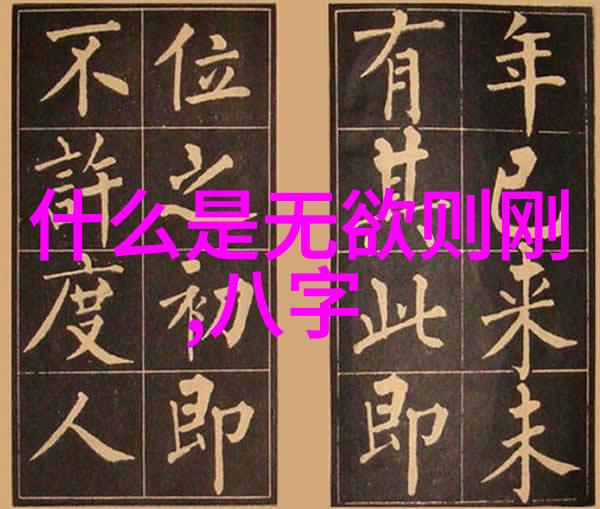 什么是无欲则刚
,八字
年已来未
有其此即
位之初即
不許度人